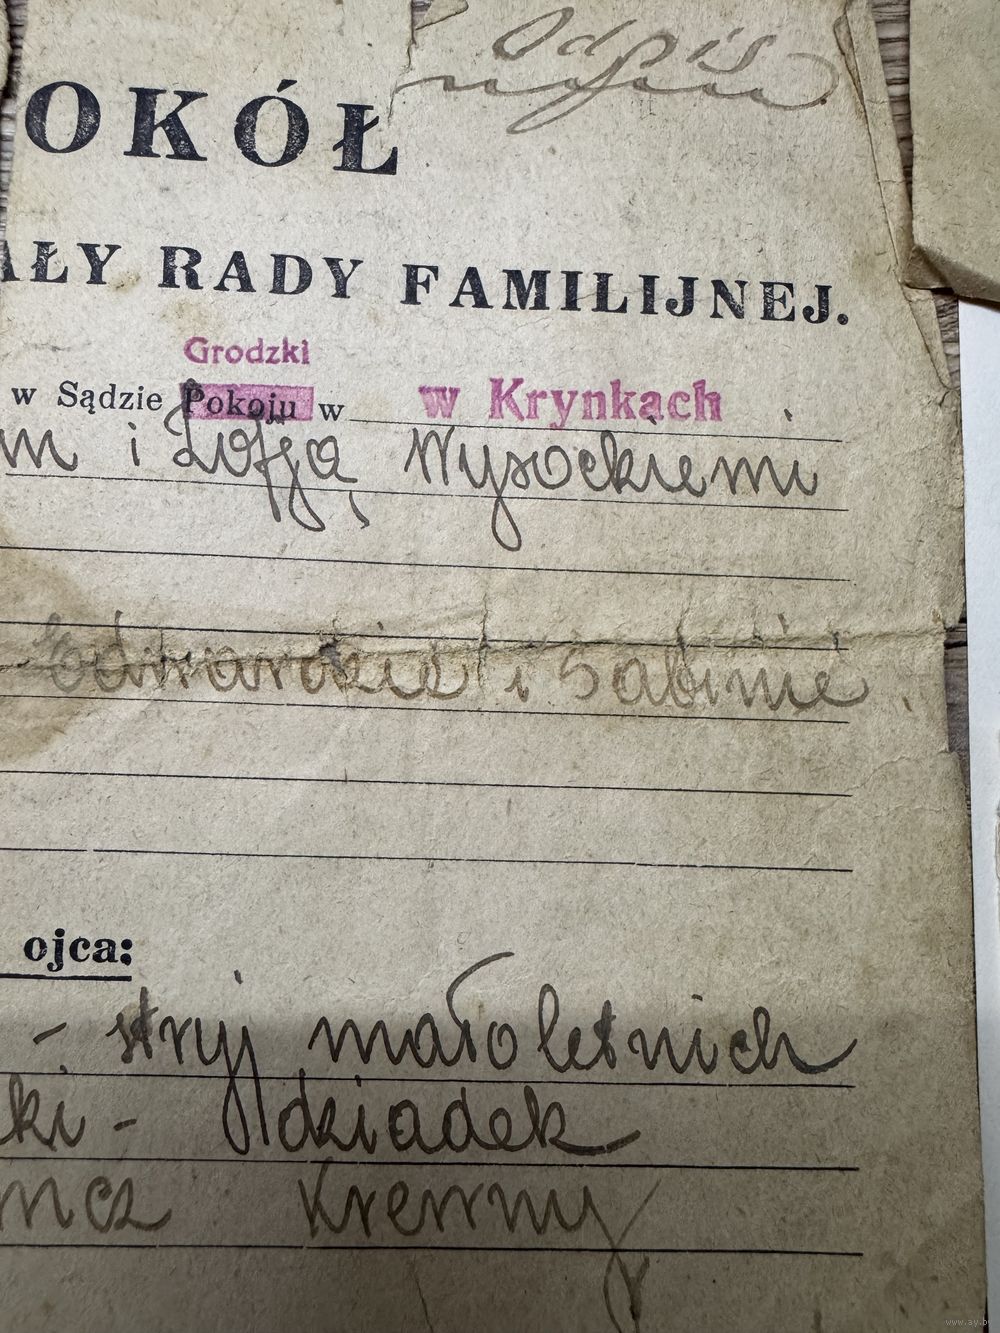 Odpis
OKÓŁ
AŁY RADY FAMILIJNEJ.
Grodzki
w Sądzie Pokoju w w Krynkach
m i Zofją Wysockiemi
Edwardzie i Sabinie.
ojca:
- stryj małoletnich
ki - dziadek
ncz krewny
www.ay.by